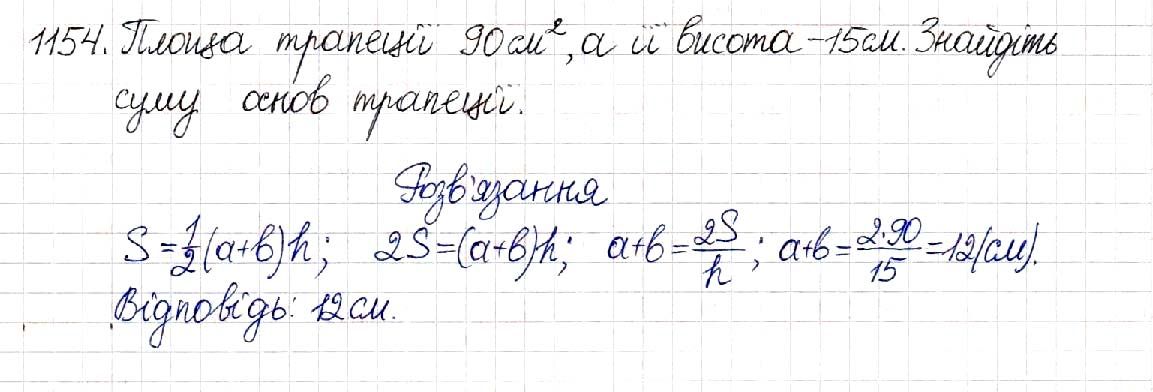 1154. Площа трапеції 90 см², а її висота – 15 см. Знайдіть
суму основ трапеції.
Розв'язання
S = 1/2 (a+b)h; 2S = (a+b)h; a+b = 2S/h; a+b = 2·90/15 = 12 (см).
Відповідь: 12 см.